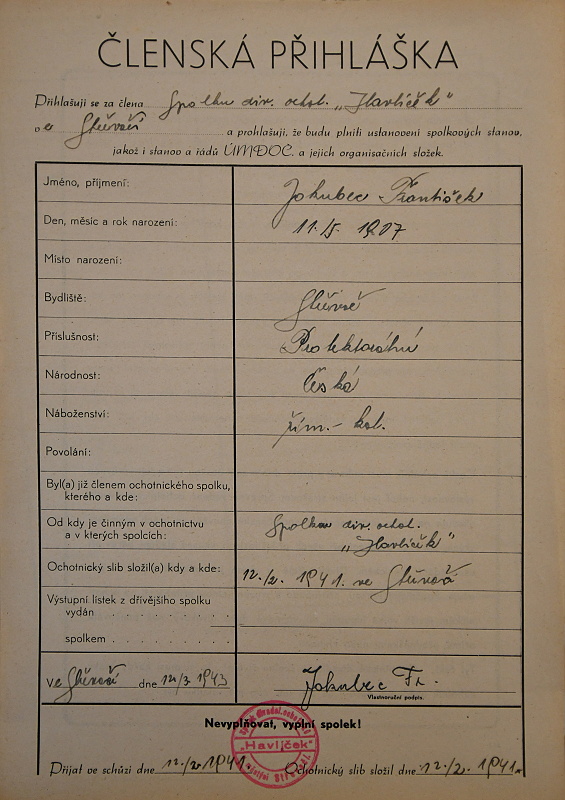 ČLENSKÁ PŘIHLÁŠKA
Přihlašuji se za člena Spolku div. ochot. „Havlíček"
v a prohlašuji, že budu plniti ustanovení spolkových stanov,
jakož i stanov a řádů ÚMDOC. a jejich organisačních složek.
Jméno, příjmení: Jakubec František
Den, měsíc a rok narození: 11./5. 1907
Místo narození:
Bydliště:
Příslušnost: Protektorátní
Národnost: česká
Náboženství: řím.- kat.
Povolání:
Byl(a) již členem ochotnického spolku,
kterého a kde:
Od kdy je činným v ochotnictvu
a v kterých spolcích:
Spolku div. ochot.
„Havlíček"
Ochotnický slib složil(a) kdy a kde: 12./2. 1941. ve
Výstupní lístek z dřívějšího spolku
vydán . . . . . . . . .
spolkem . . . . . . . . .
Ve dne 12/3 1943 Jakubec Fr.
Vlastnoruční podpis.
Nevyplňovat, vyplní spolek!
„Havlíček"
Přijat ve schůzi dne 12./2. 1941. Ochotnický slib složil dne 12./2. 1941.